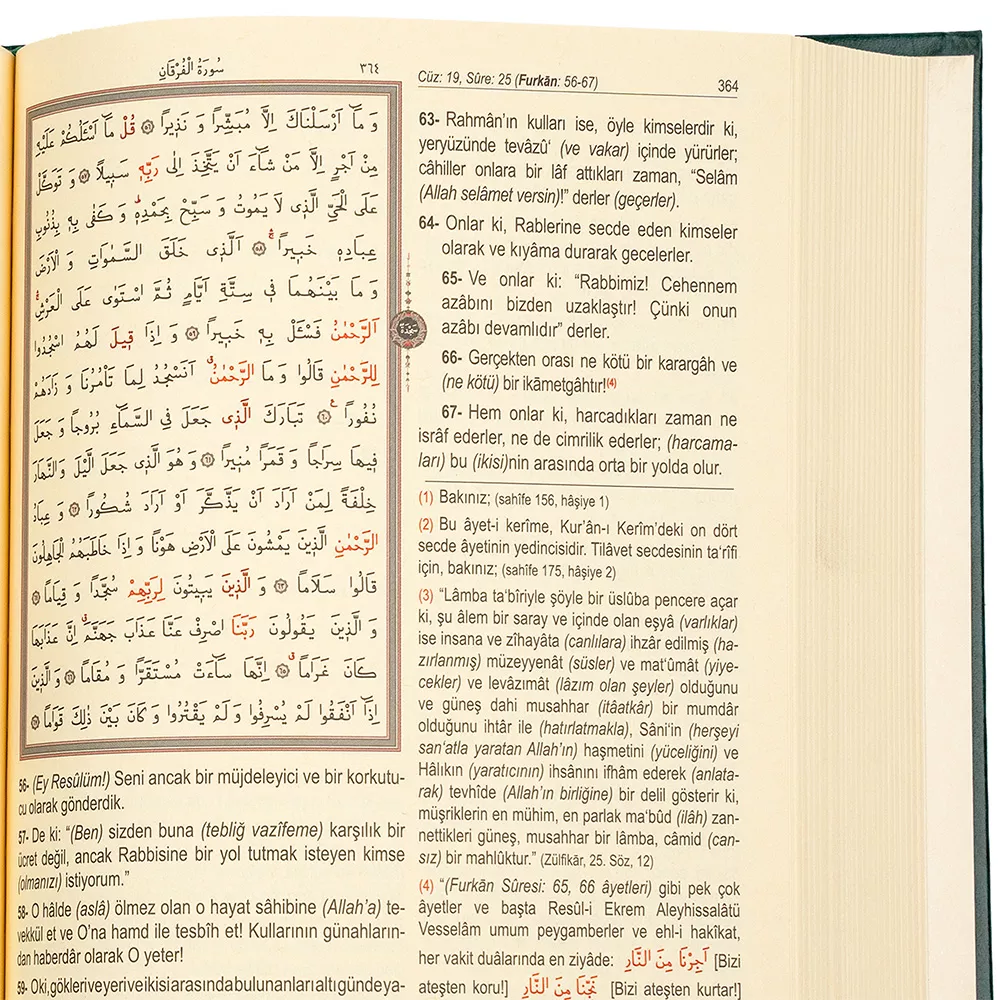 سُورَةُ الْفُرْقَانِ
٣٦٤
وَ مَٓا اَرْسَلْنَاكَ اِلَّا مُبَشِّرًا وَ نَذٖيرًا ﴿٥٦﴾ قُلْ مَٓا اَسْـَٔلُكُمْ عَلَيْهِ
مِنْ اَجْرٍ اِلَّا مَنْ شَٓاءَ اَنْ يَتَّخِذَ اِلٰى رَبِّهٖ سَبٖيلًا ﴿٥٧﴾ وَ تَوَكَّلْ
عَلَى الْحَيِّ الَّذٖى لَا يَمُوتُ وَ سَبِّحْ بِحَمْدِهٖ وَ كَفٰى بِهٖ بِذُنُوبِ
عِبَادِهٖ خَبٖيرًا ﴿٥٨﴾ اَلَّذٖى خَلَقَ السَّمٰوَاتِ وَ الْاَرْضَ
وَ مَا بَيْنَهُمَا فٖى سِتَّةِ اَيَّامٍ ثُمَّ اسْتَوٰى عَلَى الْعَرْشِ
اَلرَّحْمٰنُ فَسْـَٔلْ بِهٖ خَبٖيرًا ﴿٥٩﴾ وَ اِذَا قٖيلَ لَهُمُ اسْجُدُوا
لِلرَّحْمٰنِ قَالُوا وَ مَا الرَّحْمٰنُ اَنَسْجُدُ لِمَا تَأْمُرُنَا وَ زَادَهُمْ
نُفُورًا ﴿٦٠﴾ تَبَارَكَ الَّذٖى جَعَلَ فِى السَّمَٓاءِ بُرُوجًا وَ جَعَلَ
فٖيهَا سِرَاجًا وَ قَمَرًا مُنٖيرًا ﴿٦١﴾ وَ هُوَ الَّذٖى جَعَلَ الَّيْلَ وَ النَّهَارَ
خِلْفَةً لِمَنْ اَرَادَ اَنْ يَذَّكَّرَ اَوْ اَرَادَ شُكُورًا ﴿٦٢﴾ وَ عِبَادُ
الرَّحْمٰنِ الَّذٖينَ يَمْشُونَ عَلَى الْاَرْضِ هَوْنًا وَ اِذَا خَاطَبَهُمُ الْجَاهِلُونَ
قَالُوا سَلَامًا ﴿٦٣﴾ وَ الَّذٖينَ يَبٖيتُونَ لِرَبِّهِمْ سُجَّدًا وَ قِيَامًا ﴿٦٤﴾
وَ الَّذٖينَ يَقُولُونَ رَبَّنَا اصْرِفْ عَنَّا عَذَابَ جَهَنَّمَ اِنَّ عَذَابَهَا
كَانَ غَرَامًا ﴿٦٥﴾ اِنَّهَا سَٓاءَتْ مُسْتَقَرًّا وَ مُقَامًا ﴿٦٦﴾ وَ الَّذٖينَ
اِذَٓا اَنْفَقُوا لَمْ يُسْرِفُوا وَ لَمْ يَقْتُرُوا وَ كَانَ بَيْنَ ذٰلِكَ قَوَامًا ﴿٦٧﴾
سَجْدَة
56- (Ey Resûlüm!) Seni ancak bir müjdeleyici ve bir korkutu-
cu olarak gönderdik.
57- De ki: “(Ben) sizden buna (tebliğ vazîfeme) karşılık bir
ücret değil, ancak Rabbisine bir yol tutmak isteyen kimse
(olmanızı) istiyorum.”
58- O hâlde (aslâ) ölmez olan o hayat sâhibine (Allah’a) te-
vekkül et ve O’na hamd ile tesbîh et! Kullarının günahların-
dan haberdâr olarak O yeter!
59- O ki, gökleri ve yeri ve ikisi arasında bulunanları altı günde ya-
Cüz: 19, Sûre: 25 (Furkān: 56-67)
364
63- Rahmân’ın kulları ise, öyle kimselerdir ki,
yeryüzünde tevâzû‘ (ve vakar) içinde yürürler;
câhiller onlara bir lâf attıkları zaman, “Selâm
(Allah selâmet versin)!” derler (geçerler).
64- Onlar ki, Rablerine secde eden kimseler
olarak ve kıyâma durarak gecelerler.
65- Ve onlar ki: “Rabbimiz! Cehennem
azâbını bizden uzaklaştır! Çünki onun
azâbı devamlıdır” derler.
66- Gerçekten orası ne kötü bir karargâh ve
(ne kötü) bir ikāmetgâhtır!(4)
67- Hem onlar ki, harcadıkları zaman ne
isrâf ederler, ne de cimrilik ederler; (harcama-
ları) bu (ikisi)nin arasında orta bir yolda olur.
(1) Bakınız; (sahîfe 156, hâşiye 1)
(2) Bu âyet-i kerîme, Kur’ân-ı Kerîm’deki on dört
secde âyetinin yedincisidir. Tilâvet secdesinin ta‘rîfi
için, bakınız; (sahîfe 175, hâşiye 2)
(3) “Lâmba ta‘bîriyle şöyle bir üslûba pencere açar
ki, şu âlem bir saray ve içinde olan eşyâ (varlıklar)
ise insana ve zîhayâta (canlılara) ihzâr edilmiş (ha-
zırlanmış) müzeyyenât (süsler) ve mat‘ûmât (yiye-
cekler) ve levâzımât (lâzım olan şeyler) olduğunu
ve güneş dahi musahhar (itâatkâr) bir mumdâr
olduğunu ihtâr ile (hatırlatmakla), Sâni‘in (herşeyi
san‘atla yaratan Allah’ın) haşmetini (yüceliğini) ve
Hâlıkın (yaratıcının) ihsânını ifhâm ederek (anlata-
rak) tevhîde (Allah’ın birliğine) bir delil gösterir ki,
müşriklerin en mühim, en parlak ma‘bûd (ilâh) zan-
nettikleri güneş, musahhar bir lâmba, câmid (can-
sız) bir mahlûktur.” (Zülfikār, 25. Söz, 12)
(4) “(Furkān Sûresi: 65, 66 âyetleri) gibi pek çok
âyetler ve başta Resûl-i Ekrem Aleyhissalâtü
Vesselâm umum peygamberler ve ehl-i hakîkat,
her vakit duâlarında en ziyâde: اَجِرْنَا مِنَ النَّارِ [Bizi
ateşten koru!] نَجِّنَا مِنَ النَّارِ [Bizi ateşten kurtar!]